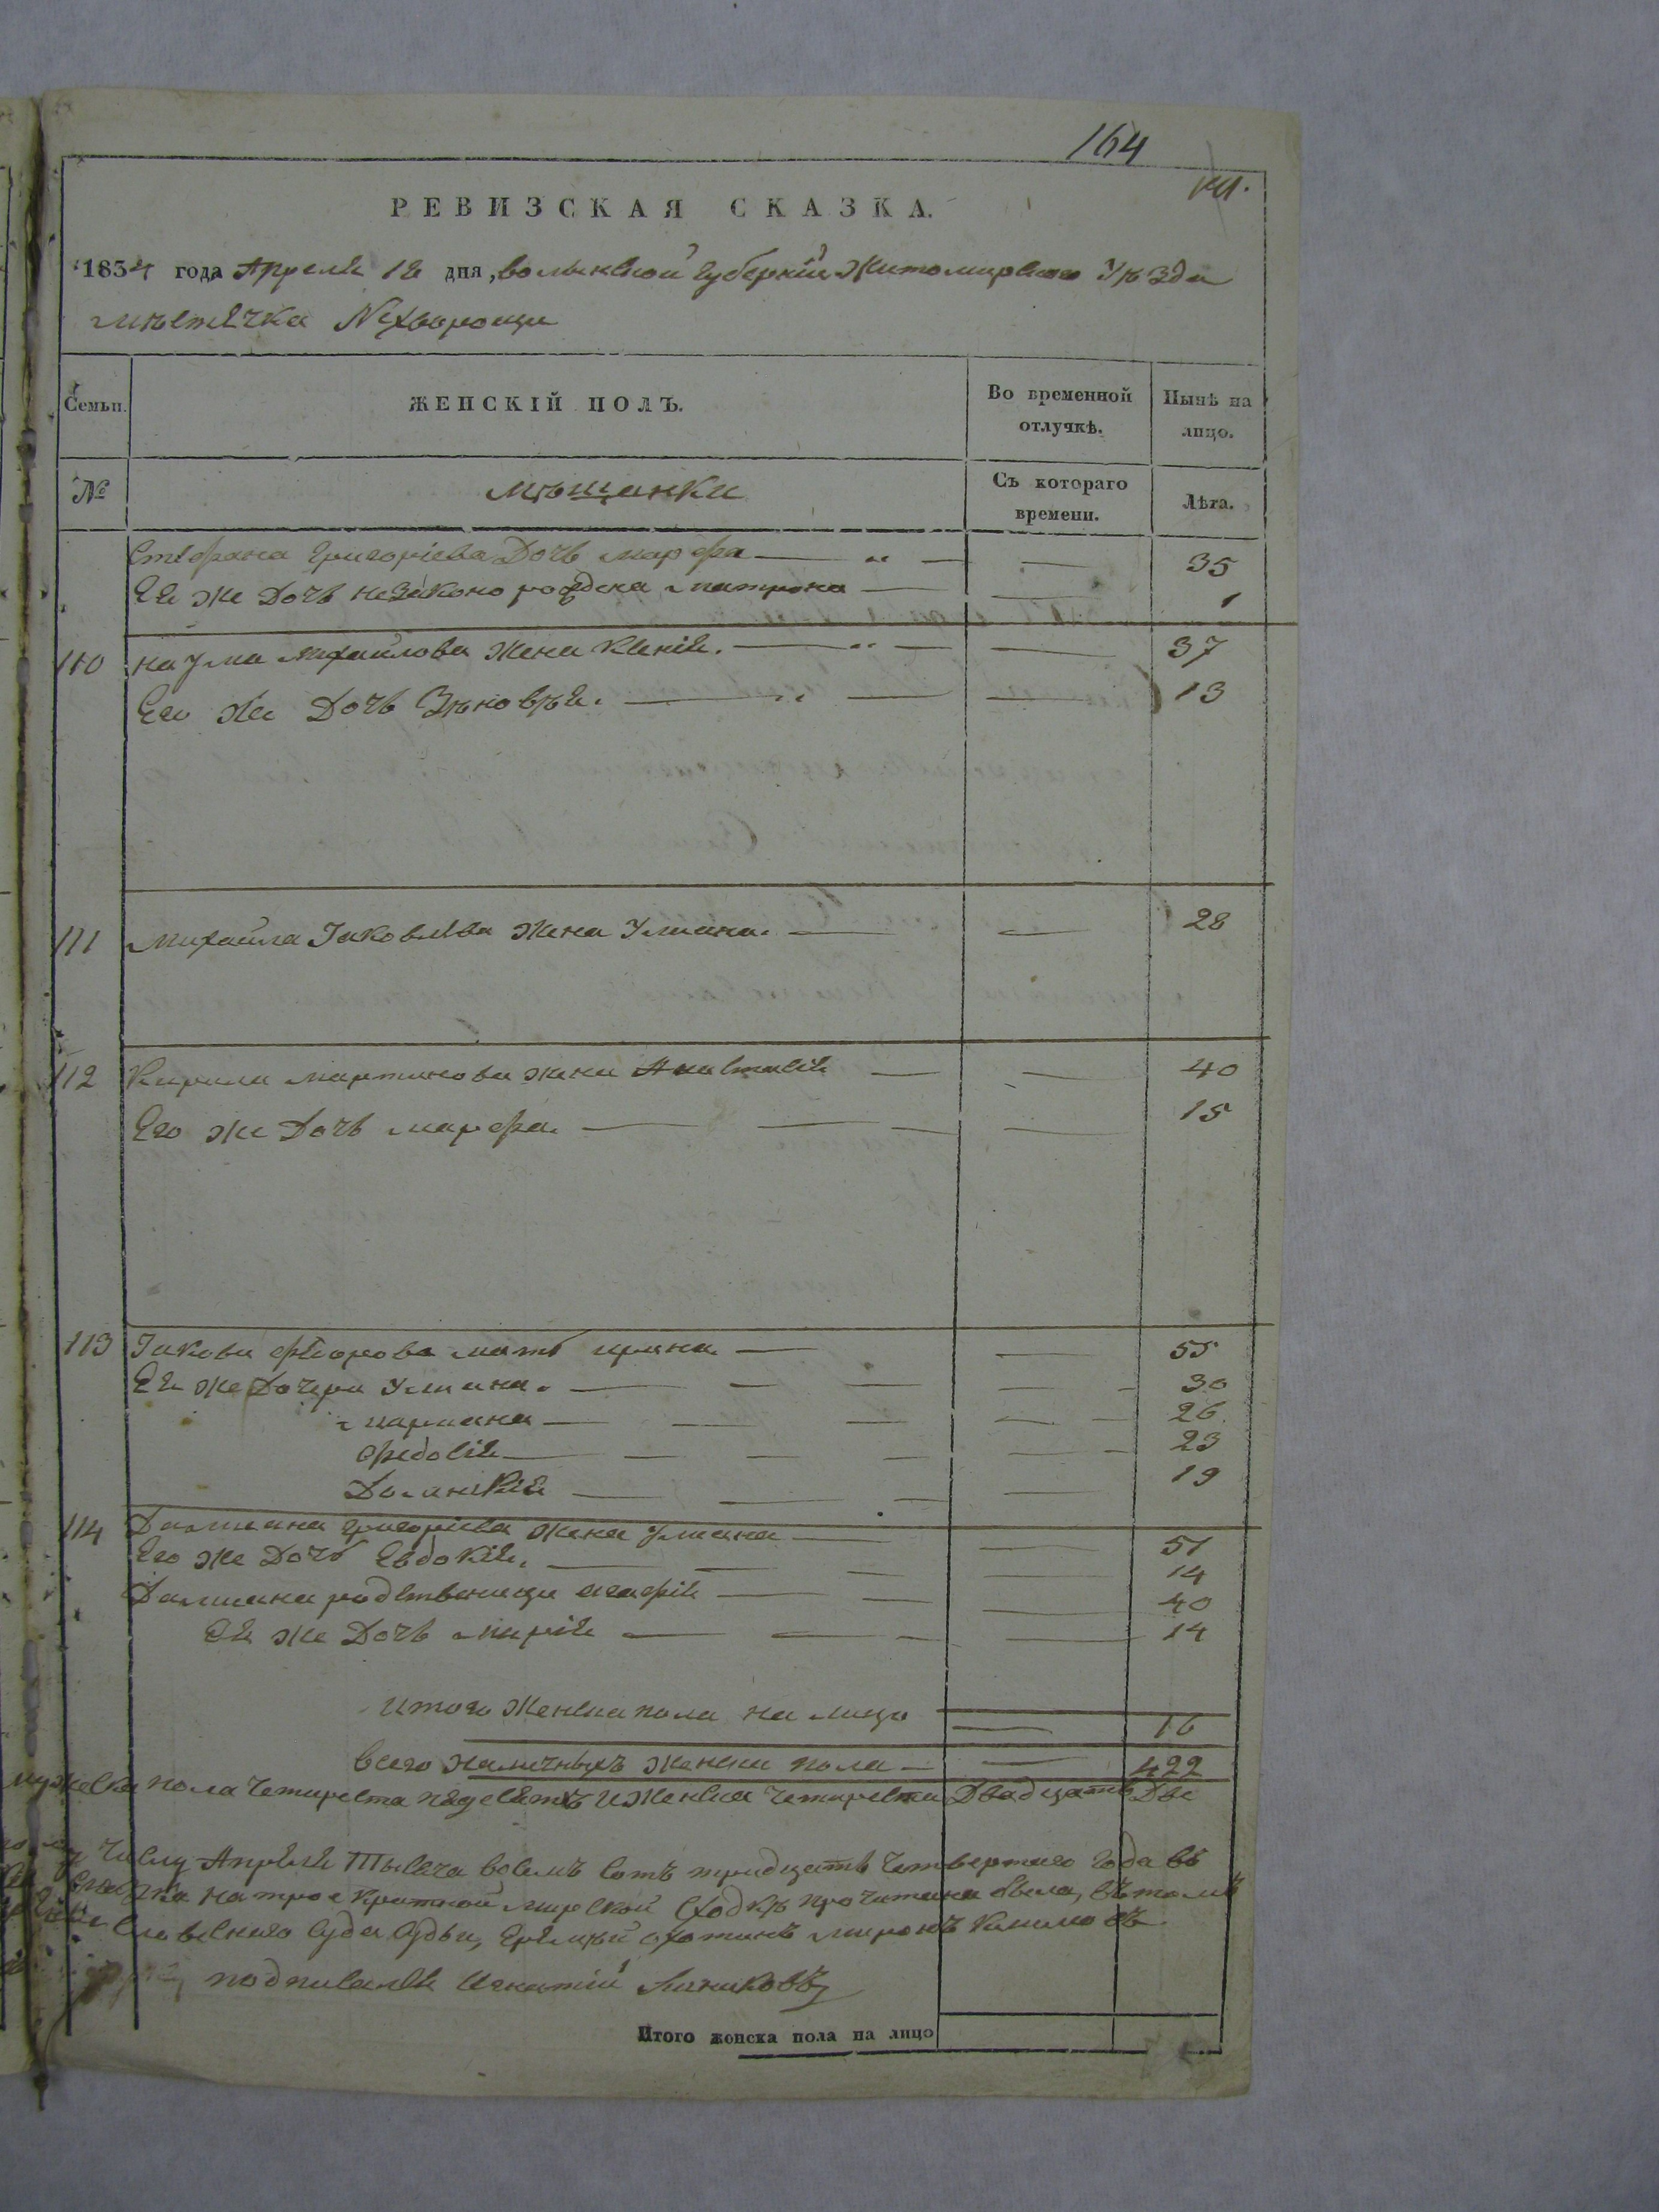 164
РЕВИЗСКАЯ СКАЗКА.
1834 года Апреля 18 дня, волынской губернии Житомирского Уѣзда
мѣстечка Нехворощи
Семьи. ЖЕНСКІЙ ПОЛЪ. Во временной отлучкѣ. Нынѣ на лицо.
№ мѣщанки Съ котораго времени. Лѣта.
Стефана Григоріева Дочь марфа 35
Ея же Дочь незаконо рождена матрона 1
110 наума михайлова жена Ксенія. 37
Его же Дочь Зѣновѣя. 13
111 михайла Іаковлева жена Улиана. 28
112 Кирила мартинова жена Анастасія 40
Его же Дочь марфа. 15
113 Іакова федорова мать ирина 55
Ея же Дочери Улиана. 30
мариана 26
федосія 23
Домникія 19
114 Дамиана григоріева жена Улиана 51
Его же Дочь Евдокія. 14
Дамиана родственица агафія 40
Ея же Дочь марія 14
итого женска пола на лицо 16
всего наличныхъ женска пола 422
мужеска пола четиреста и женска четиреста Двадцать Две
числу Апреля Тысеча восемъ сотъ тридцать четвертого года въ
на трое кратной мирской сходкѣ прочитана была, въ томъ
словесного суда судьи, миронъ климовъ
подписался игнатий
Итого женска пола на лицо